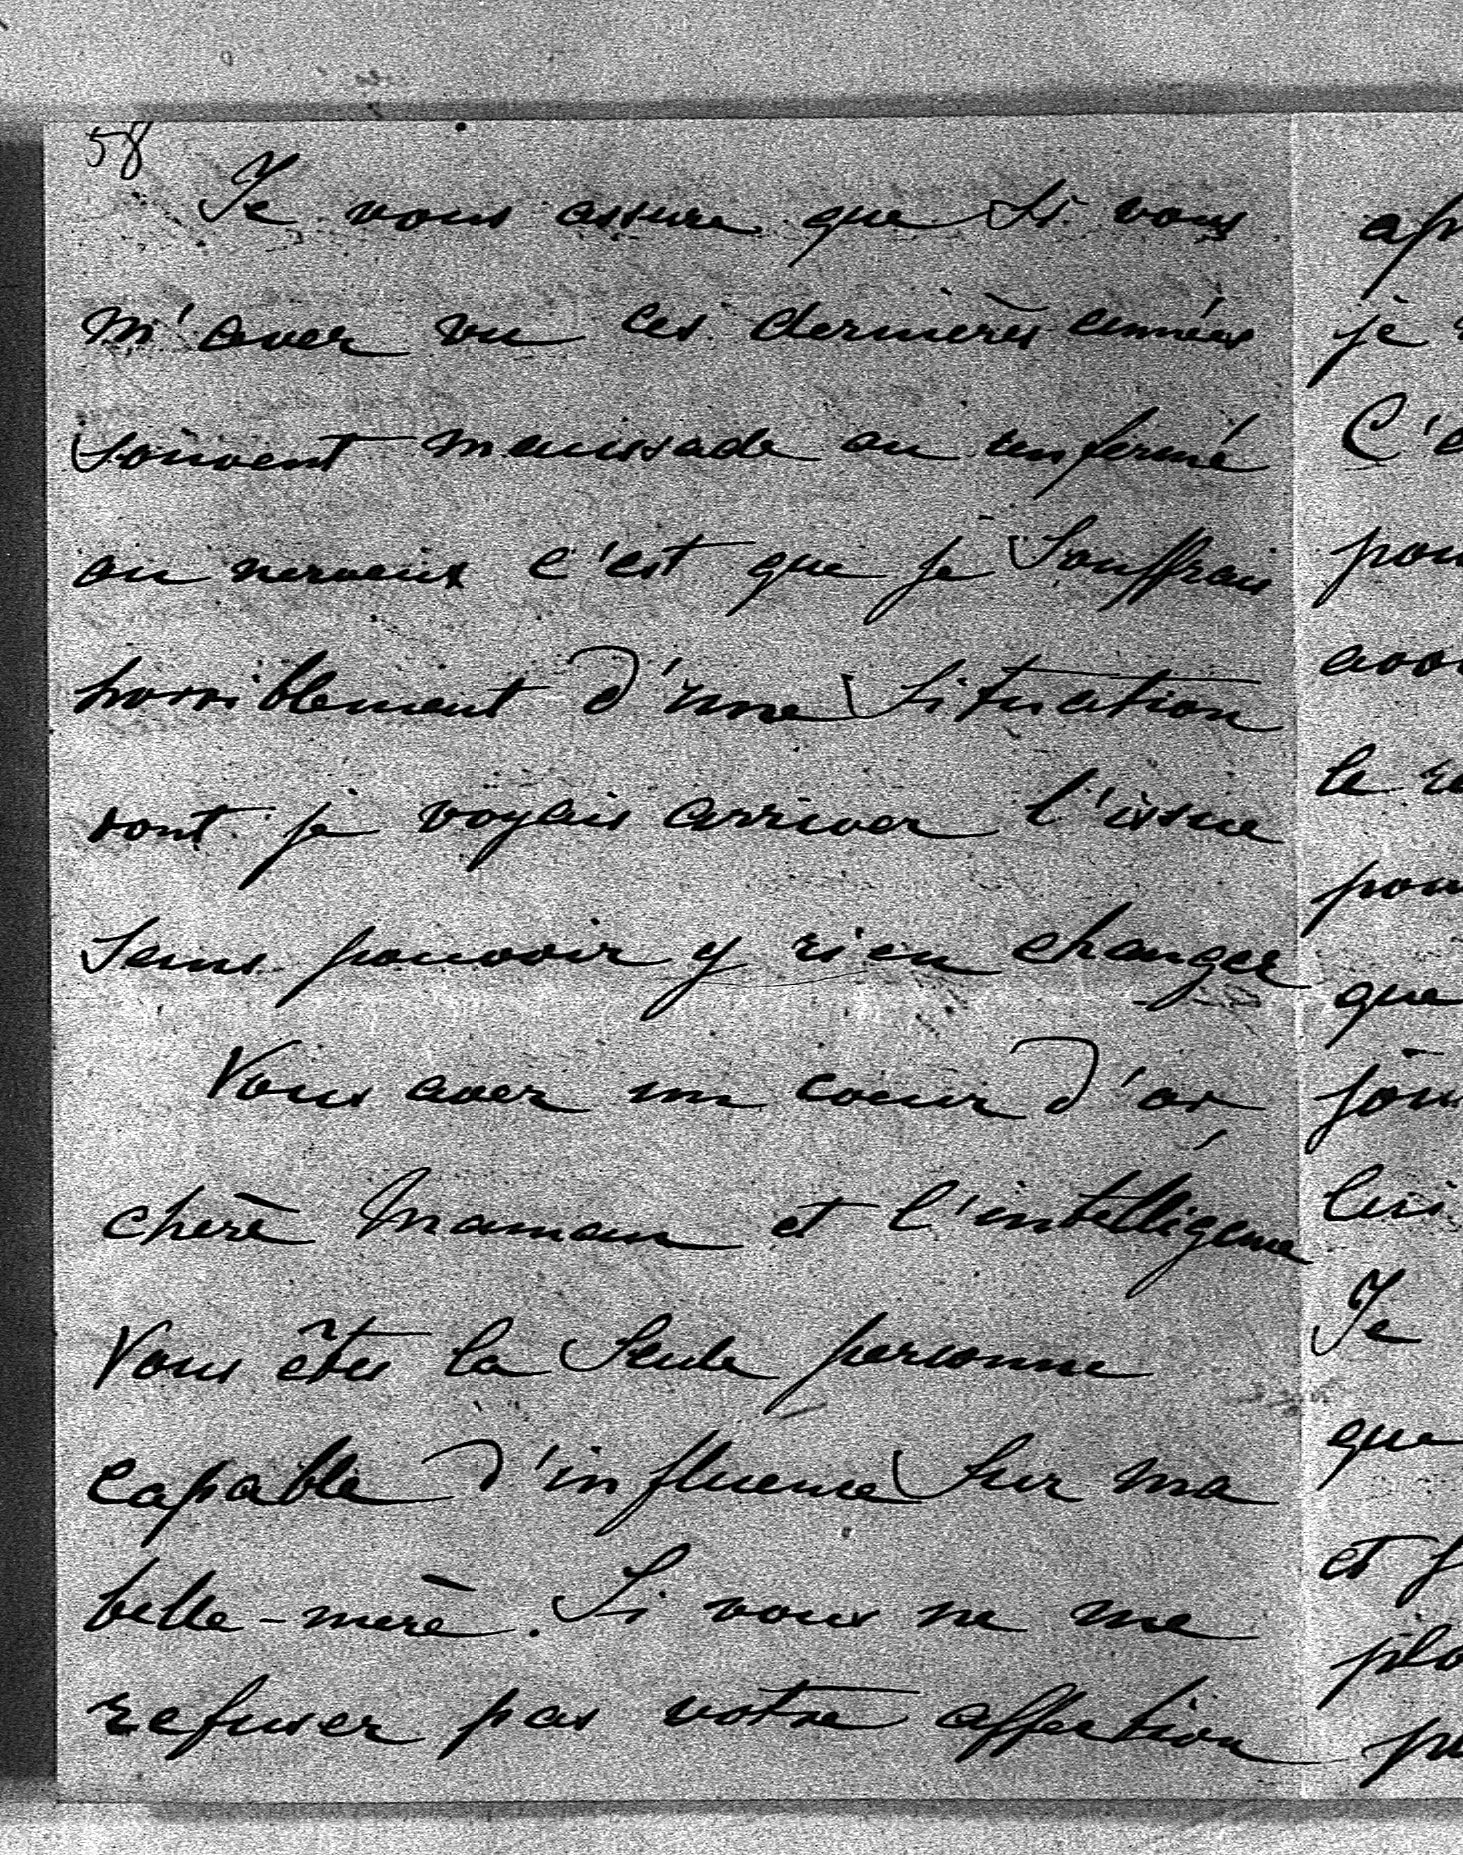 58
Je vous assure que si vous
m'avez vu ces dernières années
souvent maussade ou renfermé
ou nerveux c'est que je souffrais
horriblement d'une situation
dont je voyais arriver l'issue
sans pouvoir y rien changer
Vous avez un coeur d'or
chère Maman et l'intelligence
Vous êtes la seule personne
capable d'influence sur ma
belle-mère. Si vous ne me
refusez pas votre affection
je
C'
le
que
lui
Je
que
et